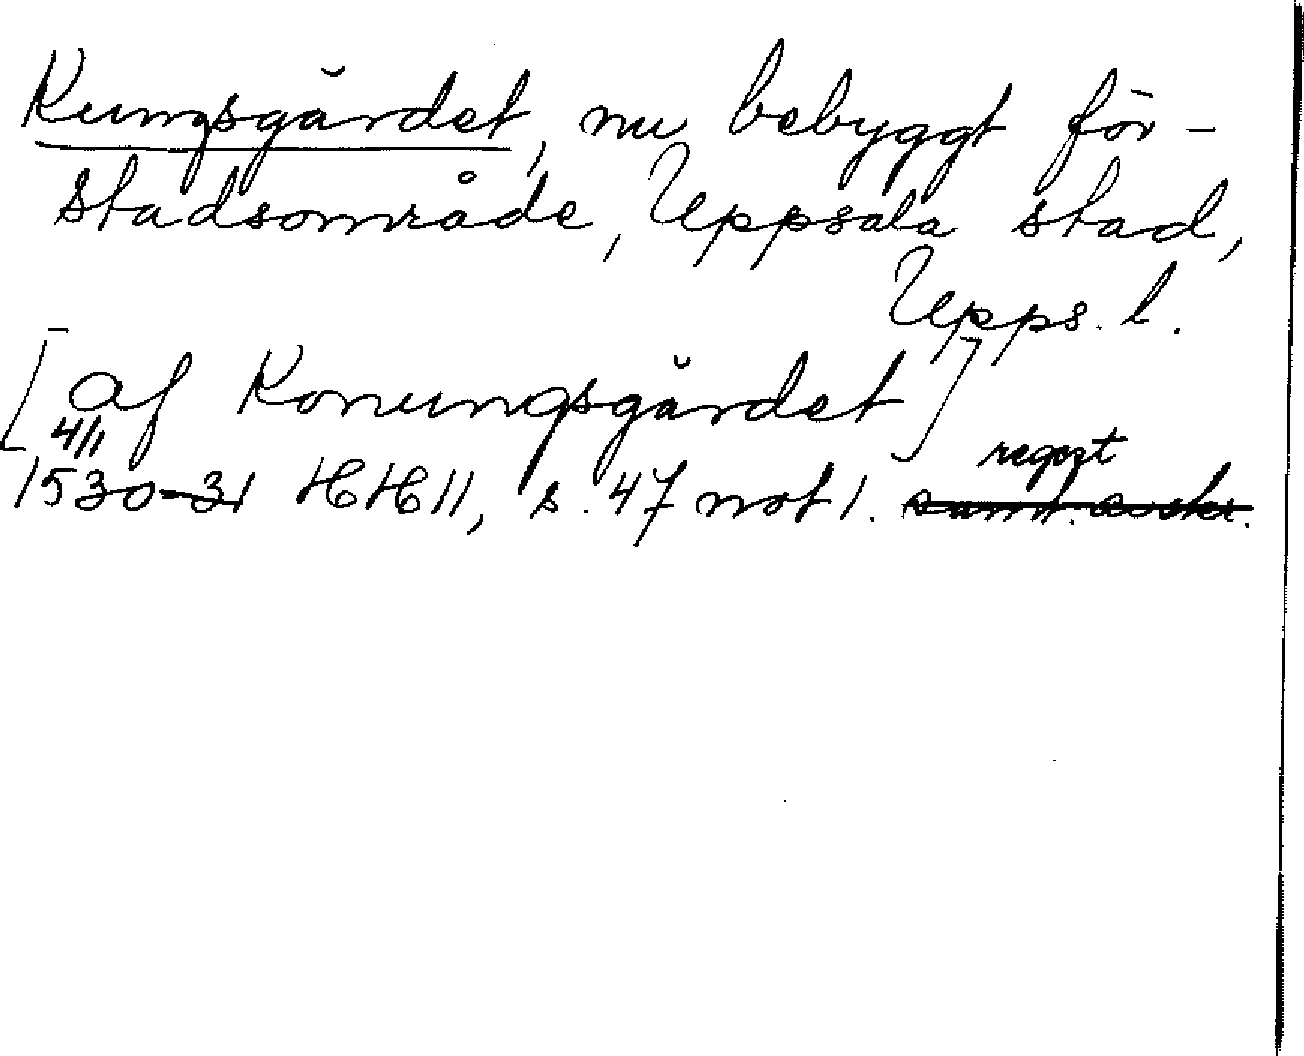 Kungsgärdet, nu bebyggt för-
stadsområde, Uppsala stad,
Upps. l.
[af Konungsgärdet]
4/1 regest
1530-31 HH 11, s. 47 not 1.